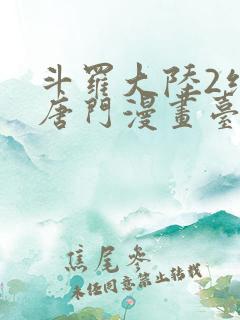 斗羅大陸2
唐門漫畫臺
焦尾參
未经同意禁止转载